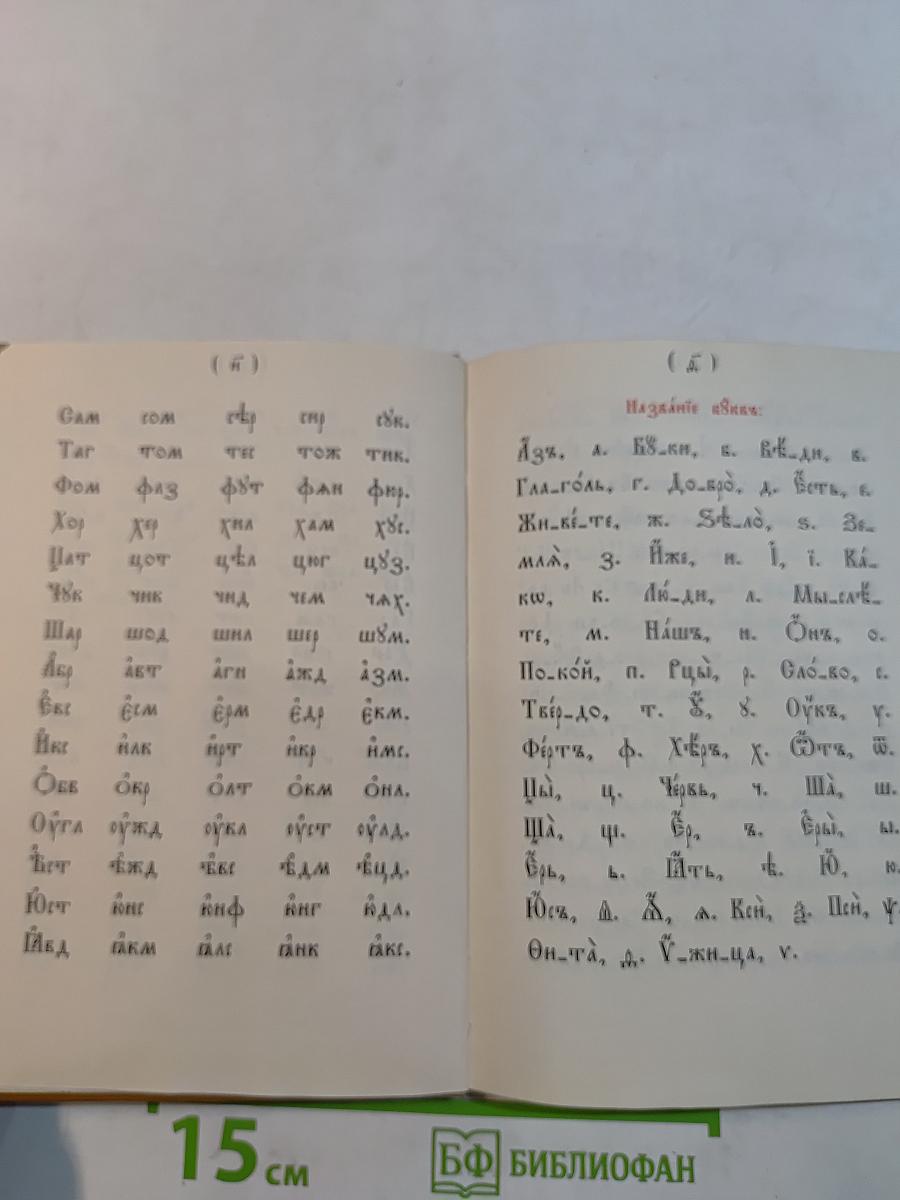 ( н҃ )
Сам сом сѣр сир сꙋк.
Таг том тес тож тик.
Фом фаз фꙋт фѧн фир.
Хор хер хил хам хꙋс.
Цат цот цѣл цюг цꙋз.
Чꙋк чик чид чем чѧх.
Шар шод шил шер шꙋм.
А҆бр а҆вт а҆гн а҆жд а҆зм.
Е҆вс е҆см е҆рм е҆др е҆км.
И҆кс и҆лк и҆рт и҆кр и҆мс.
О҆бв о҆кр о҆лт о҆км о҆нл.
Оу҆гл оу҆жд оу҆кл оу҆ст оу҆лд.
Ѣ҆ст ѣ҆жд ѣ҆вс ѣ҆дм ѣ҆цд.
Ю҆ст ю҆нс ю҆нф ю҆нг ю҆дл.
Ꙗ҆вд ꙗ҆км ꙗ҆лс ꙗ҆нк ꙗ҆кс.
( ѳ҃ )
Назва́нїе бꙋ́квъ:
А҆́зъ, а. Бꙋ́-ки, б. Вѣ́-ди, в.
Гла-го́ль, г. До-бро̀, д. Е҆́сть, е.
Жи-ве́-те, ж. Ѕѣ-ло̀, ѕ. Зе-
млѧ̀, з. И҆́же, и. І҆, ї. Ка́-
кѡ, к. Лю́-ди, л. Мы-слѣ́-
те, м. На́шъ, н. О҆́нъ, о.
По-ко́й, п. Рцы̀, р. Сло́-во, с.
Тве́р-до, т. Ꙋ҆́, ꙋ. Оу҆́къ, у.
Фе́ртъ, ф. Хѣ́ръ, х. Ѿтъ, ѿ.
Цы̀, ц. Че́рвь, ч. Ша̀, ш.
Ща̀, щ. Е҆́р, ъ. Е҆ры̀, ы.
Е҆́рь, ь. Ꙗ҆́ть, ѣ. Ю҆́, ю.
Ю҆́съ, ѫ. Ѧ҆́, ѧ. Ксѝ, ѯ. Псѝ, ѱ.
Ѳи-та̀, ѳ. Ѵ҆́-жи-ца, ѵ.
15 см
БФ БИБЛИОФАН